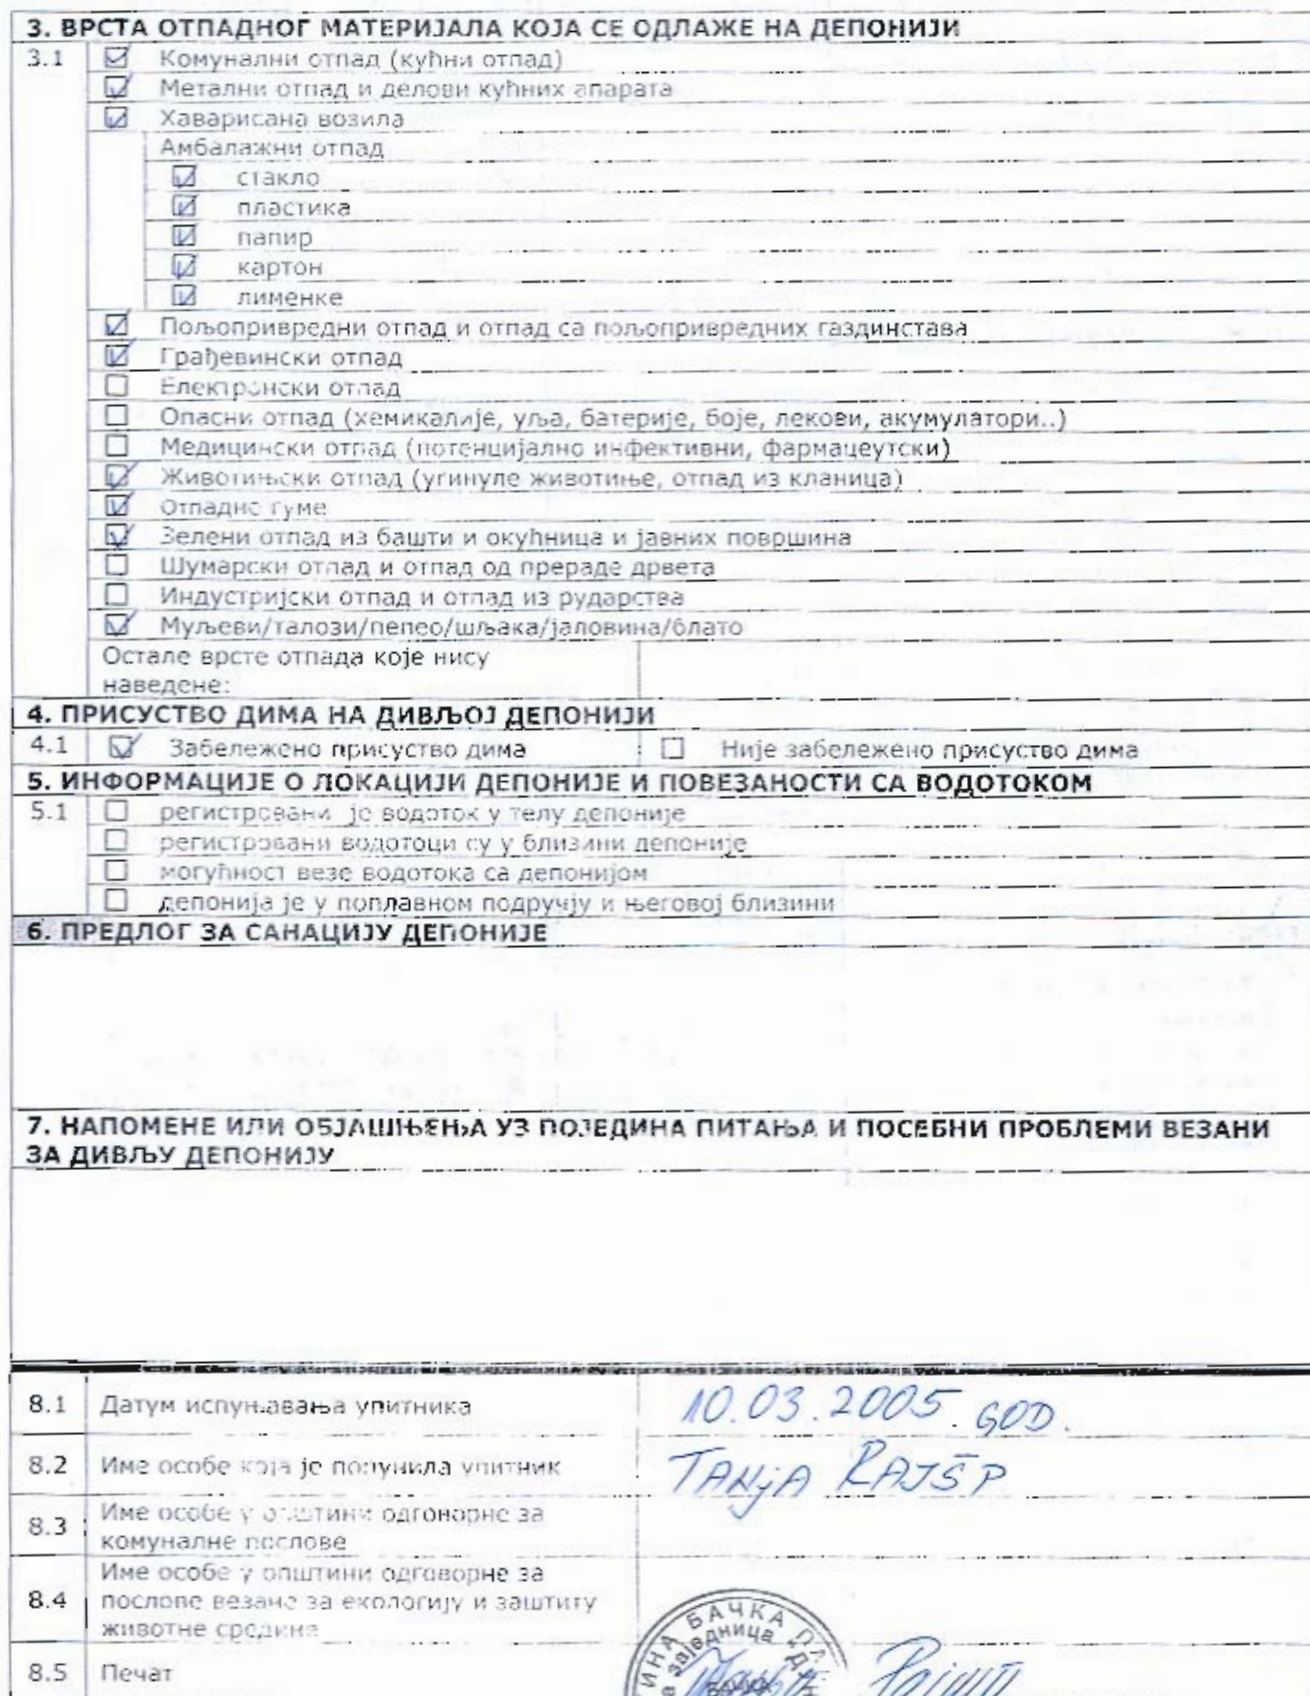 3. ВРСТА ОТПАДНОГ МАТЕРИЈАЛА КОЈА СЕ ОДЛАЖЕ НА ДЕПОНИЈИ
3.1 ☑ Комунални отпад (кућни отпад)
☑ Метални отпад и делови кућних апарата
☑ Хаварисана возила
Амбалажни отпад
☑ стакло
☑ пластика
☑ папир
☑ картон
☑ лименке
☑ Пољопривредни отпад и отпад са пољопривредних газдинстава
☑ Грађевински отпад
☐ Електронски отпад
☐ Опасни отпад (хемикалије, уља, батерије, боје, лекови, акумулатори..)
☐ Медицински отпад (потенцијално инфективни, фармацеутски)
☑ Животињски отпад (угинуле животиње, отпад из кланица)
☑ Отпадне гуме
☑ Зелени отпад из башти и окућница и јавних површина
☐ Шумарски отпад и отпад од прераде дрвета
☐ Индустријски отпад и отпад из рударства
☑ Муљеви/талози/пепео/шљака/јаловина/блато
Остале врсте отпада које нису
наведене:
4. ПРИСУСТВО ДИМА НА ДИВЉОЈ ДЕПОНИЈИ
4.1 ☑ Забележено присуство дима ☐ Није забележено присуство дима
5. ИНФОРМАЦИЈЕ О ЛОКАЦИЈИ ДЕПОНИЈЕ И ПОВЕЗАНОСТИ СА ВОДОТОКОМ
5.1 ☐ регистровани је водоток у телу депоније
☐ регистровани водотоци су у близини депоније
☐ могућност везе водотока са депонијом
☐ депонија је у поплавном подручју и његовој близини
6. ПРЕДЛОГ ЗА САНАЦИЈУ ДЕПОНИЈЕ
7. НАПОМЕНЕ ИЛИ ОБЈАШЊЕЊА УЗ ПОЈЕДИНА ПИТАЊА И ПОСЕБНИ ПРОБЛЕМИ ВЕЗАНИ
ЗА ДИВЉУ ДЕПОНИЈУ
8.1 Датум испуњавања упитника 10.03.2005. GOD.
8.2 Име особе која је попунила упитник TANJA RAJŠP
8.3 Име особе у општини одговорне за
комуналне послове
8.4 Име особе у општини одговорне за
послове везане за екологију и заштиту
животне средине
8.5 Печат
БАЧКА
заједница